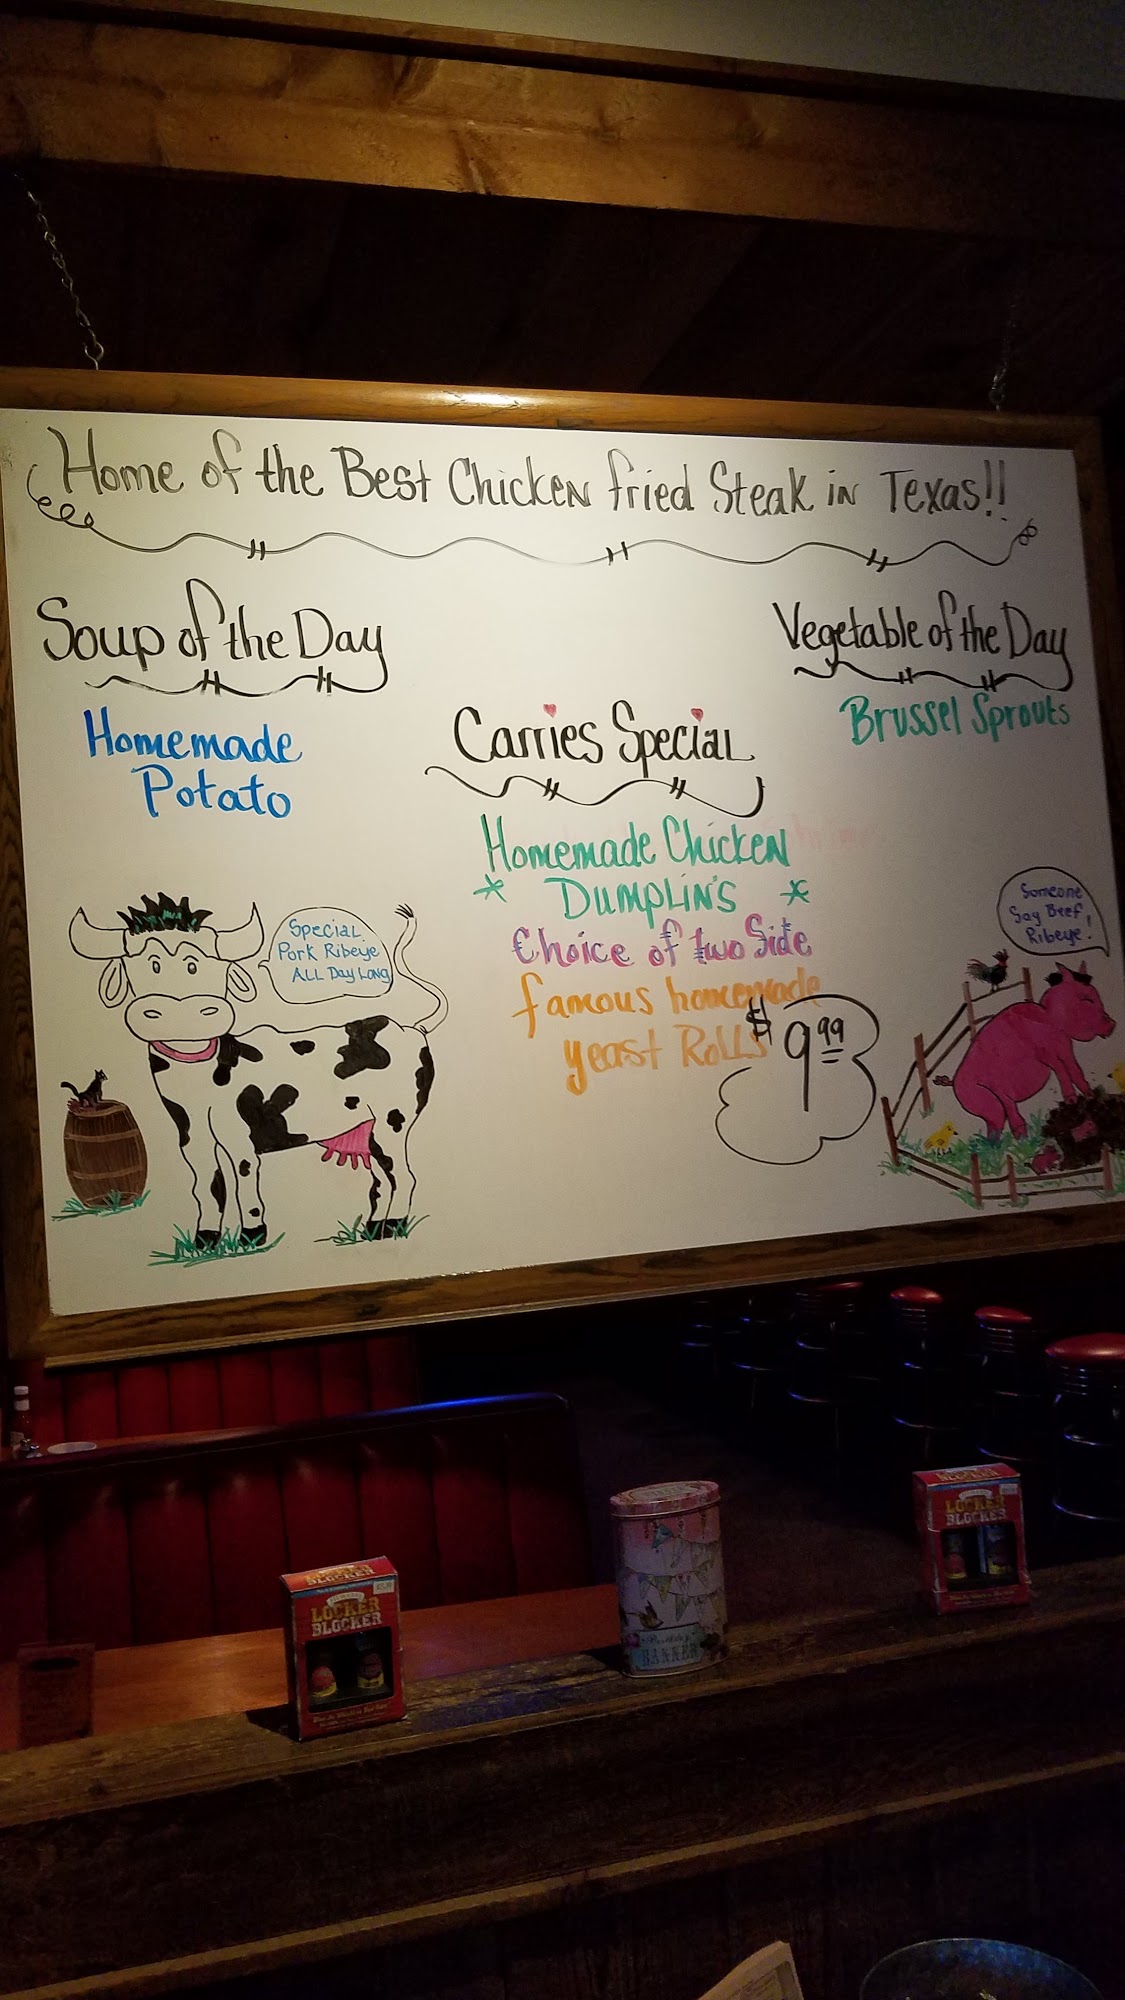 Home of the Best Chicken fried Steak in Texas!!
Soup of the Day
Homemade
Potato
Vegetable of the Day
Brussel Sprouts
Carries Special
Homemade Chicken
* Dumplin's *
Choice of two Side
famous homemade
yeast Rolls
$9.99
Special
Pork Ribeye
ALL Day Long
Someone
Say Beef
Ribeye!
LOCKER
BLOCKER
BANNER
LOCKER
BLOCKER